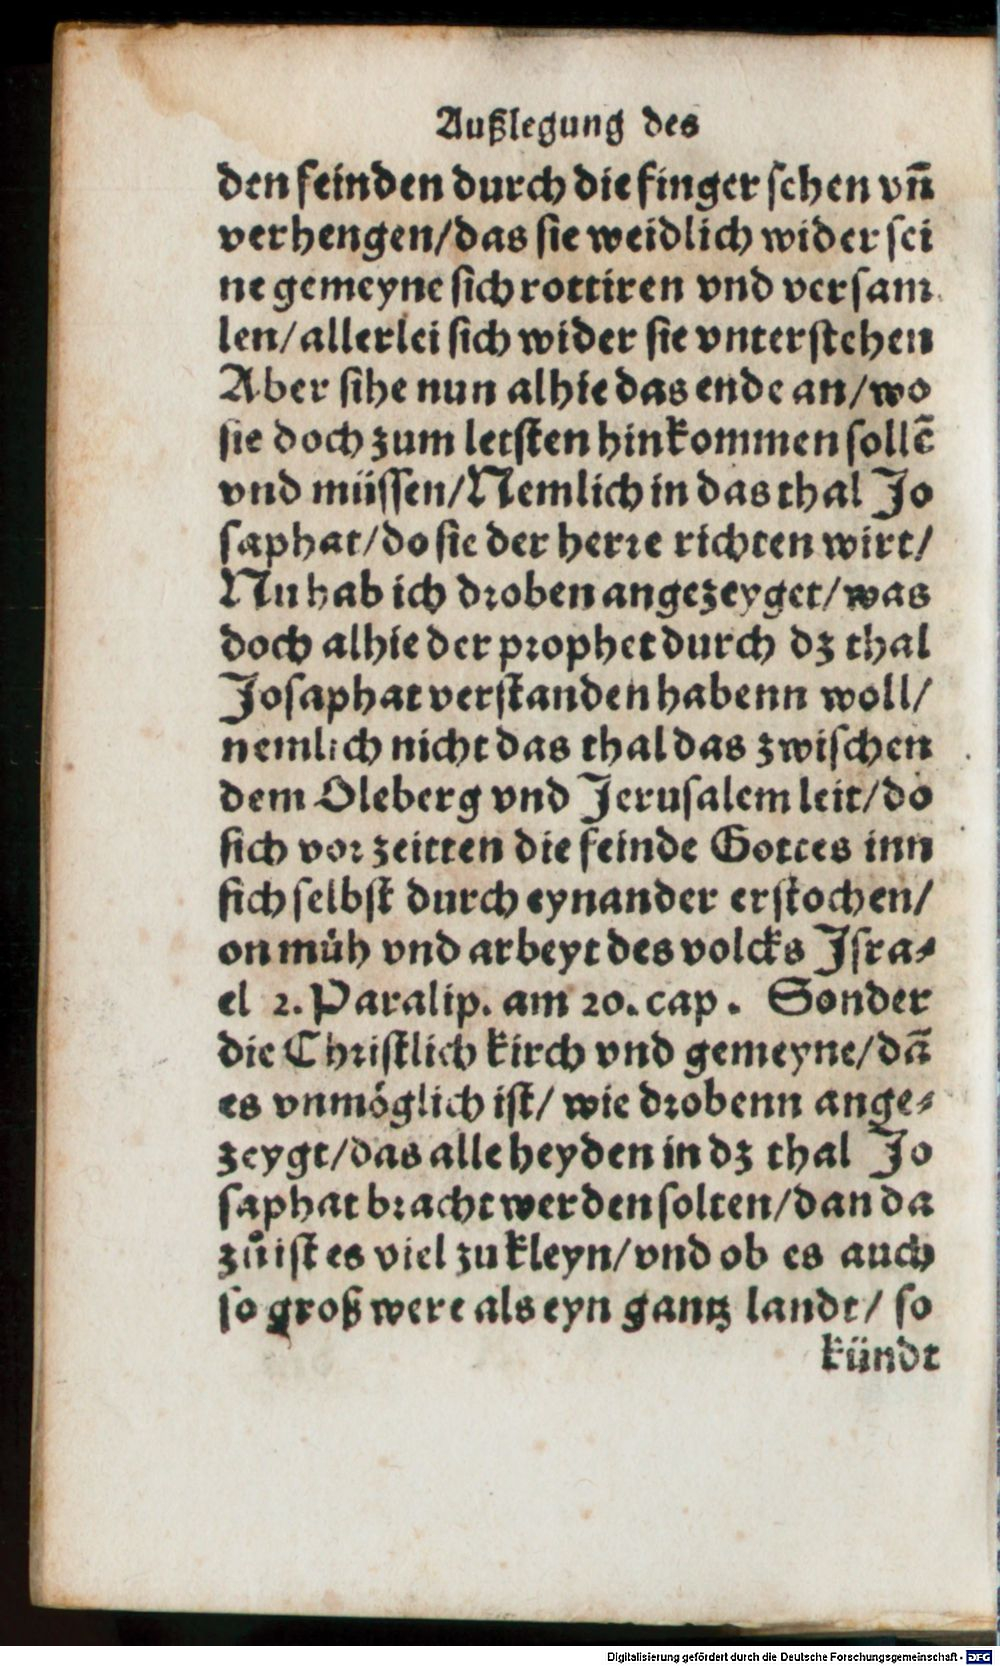 Außlegung des
den feinden durch die finger sehen vñ
verhengen/das sie weidlich wider sei
ne gemeyne sich rottiren vnd versam
len/allerlei sich wider sie vnterstehen
Aber sihe nun alhie das ende an/wo
sie doch zum letsten hinkommen sollē
vnd müssen/Nemlich in das thal Jo
saphat/do sie der herre richten wirt/
Nu hab ich droben angezeyget/was
doch alhie der prophet durch dz thal
Josaphat verstanden habenn woll/
nemlich nicht das thal das zwischen
dem Oleberg vnd Jerusalem leit/do
sich vor zeitten die feinde Gottes inn
sich selbst durch eynander erstochen/
on müh vnd arbeyt des volcks Isra⸗
el 2. Paralip. am 20. cap. Sonder
die Christlich kirch vnd gemeyne/dā
es vnmöglich ist/ wie drobenn ange⸗
zeygt/das alle heyden in dz thal Jo
saphat bracht werden solten/dan da
zů ist es viel zu kleyn/vnd ob es auch
so groß were als eyn gantz landt/ so
kündt
Digitalisierung gefördert durch die Deutsche Forschungsgemeinschaft - DFG